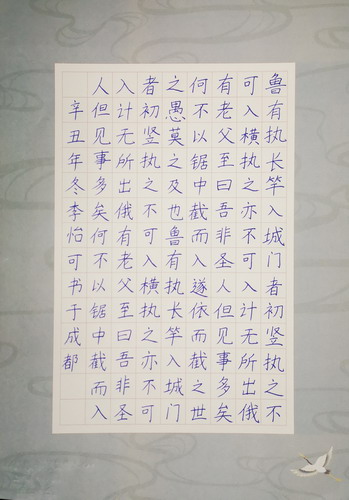 鲁有执长竿入城门者初竖执之不
可入横执之亦不可入计无所出俄
有老父至曰吾非圣人但见事多矣
何不以锯中截而入遂依而截之世
之愚莫之及也鲁有执长竿入城门
者初竖执之不可入横执之亦不可
入计无所出俄有老父至曰吾非圣
人但见事多矣何不以锯中截而入
辛丑年冬李怡可书于成都